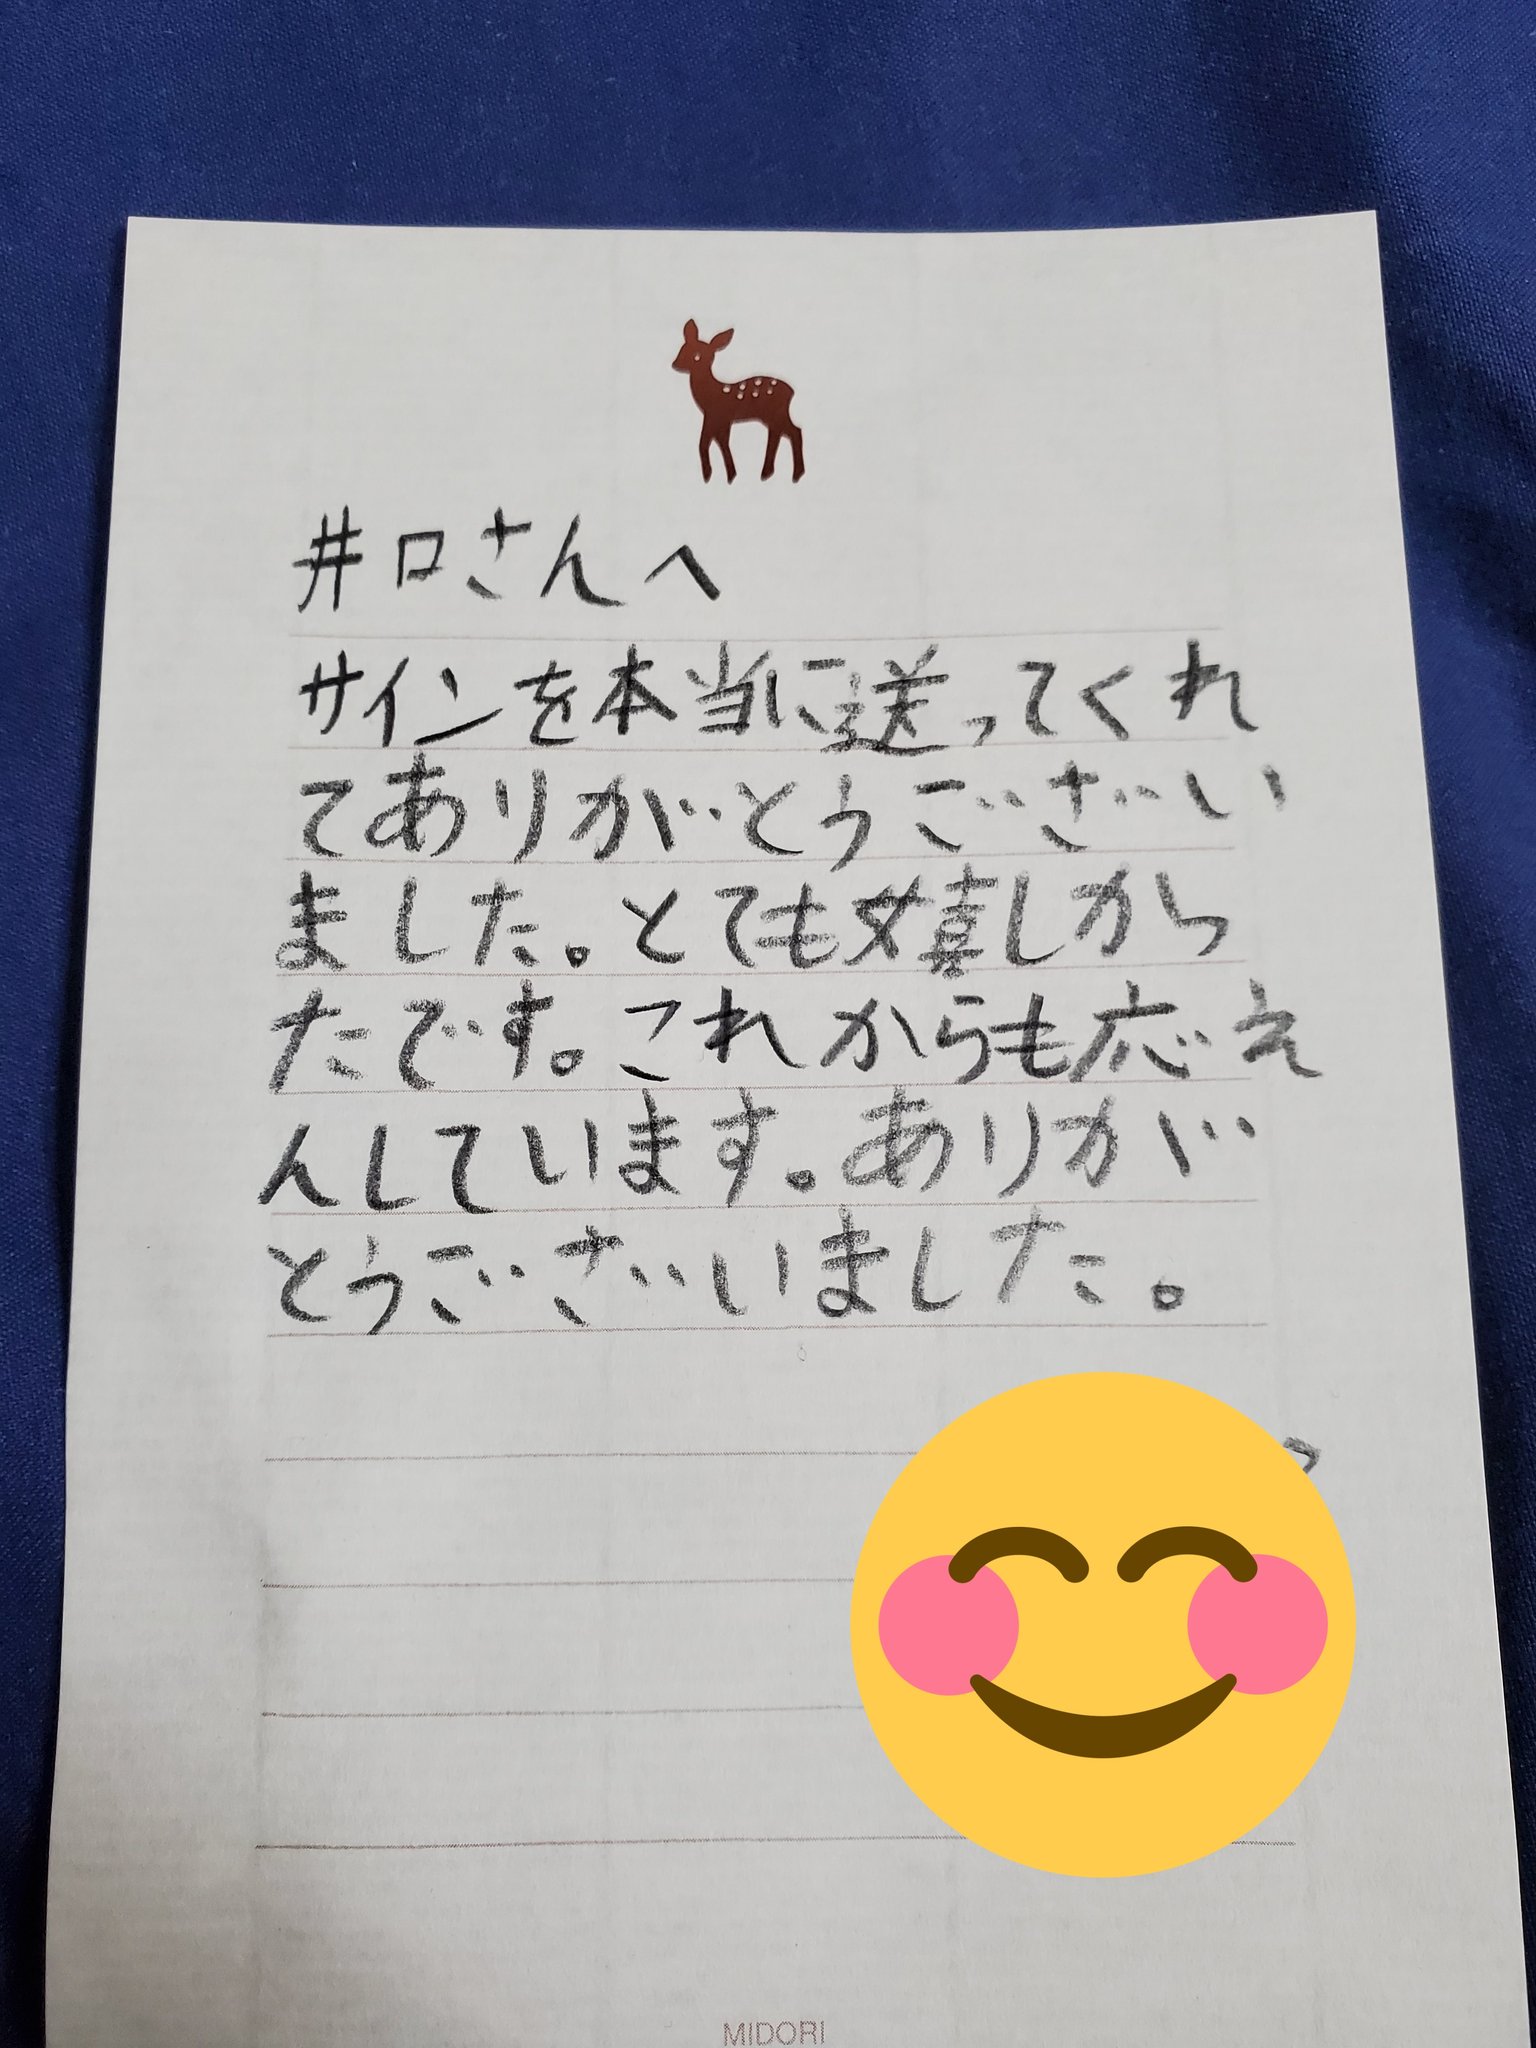 井口さんへ
サインを本当に送ってくれ
てありがとうござい
ました。とても嬉しかっ
たです。これからも応え
んしています。ありが
とうございました。
MIDORI